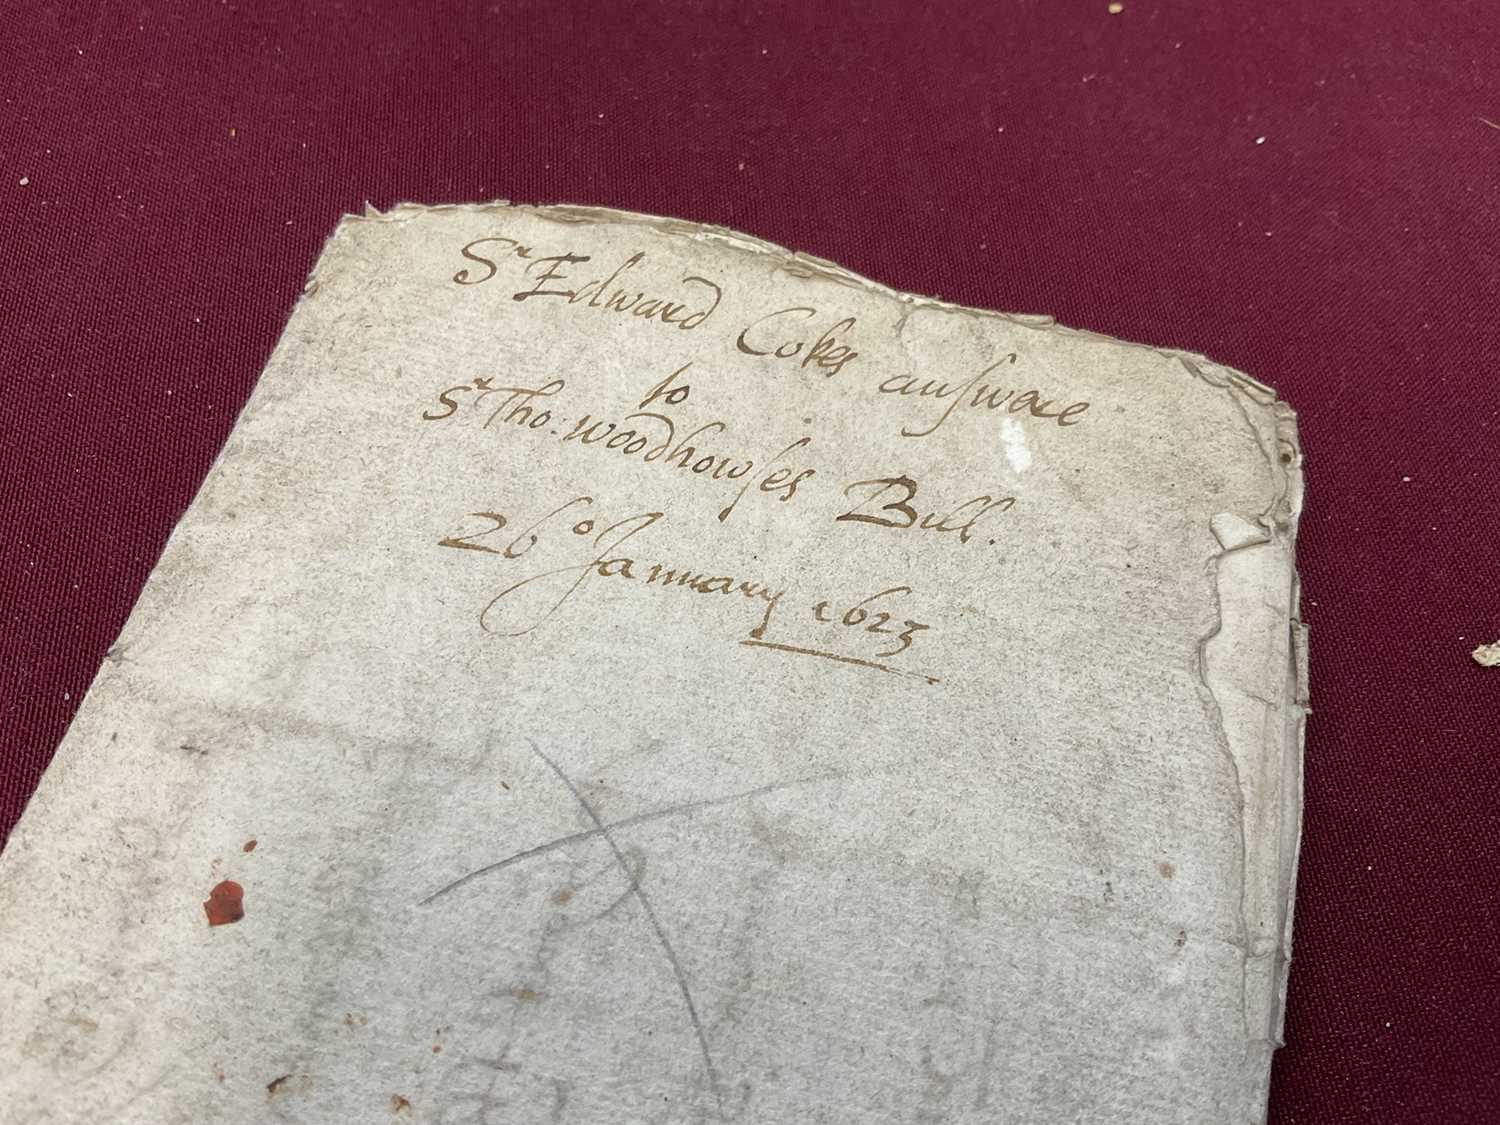 Sr Edward Cokes anſwere
to
Sr Tho: Woodhowſes Bill.
26o January 1623